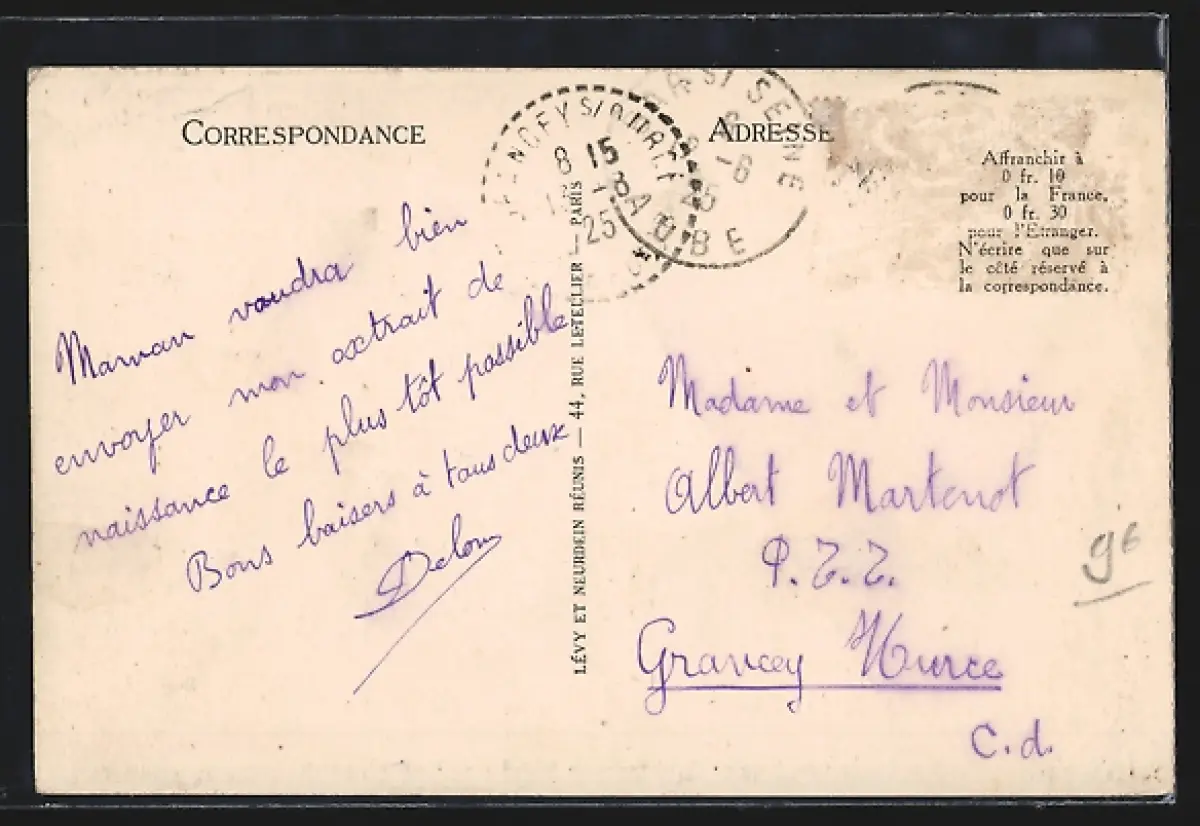 CORRESPONDANCE
ADRESSE
Affranchir à
0 fr. 10
pour la France.
0 fr. 30
pour l'Etranger.
N'écrire que sur
le côté réservé à
la correspondance.
S/OURCE
8 15
-8
25
SUR SEINE
-8
25
AUBE
Maman voudra bien
envoyer mon extrait de
naissance le plus tôt possible
Bons baisers à tous deux
LÉVY ET NEURDEIN RÉUNIS — 44, RUE LETELLIER — PARIS
Madame et Monsieur
Albert Martenot
P.T.T.
Grancey
C.d.
9€